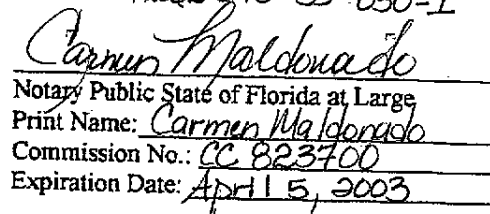 030-1
Carmen Maldonado
Notary Public State of Florida at Large
Print Name: Carmen Maldonado
Commission No.: CC 823700
Expiration Date: April 5, 2003